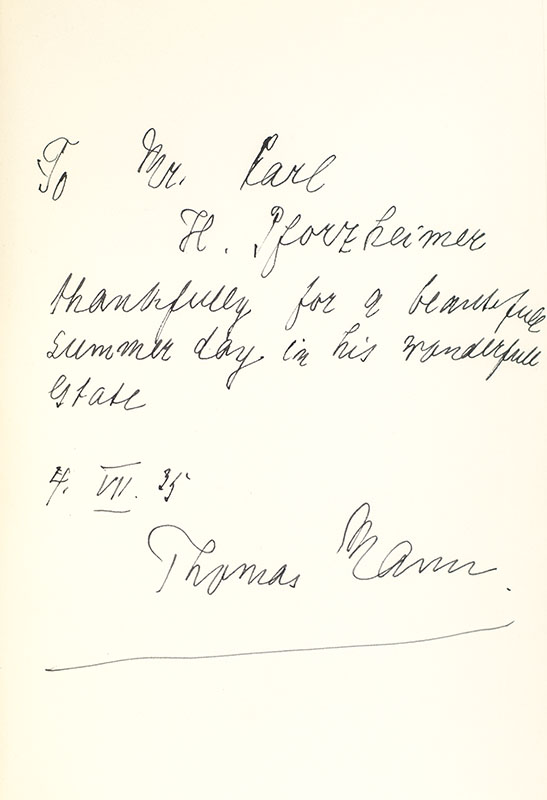 To Mr. Karl
H. Pforzheimer
thankfully for a beautifull
summer day in his wonderfull
estate
4. VII. 35
Thomas Mann.